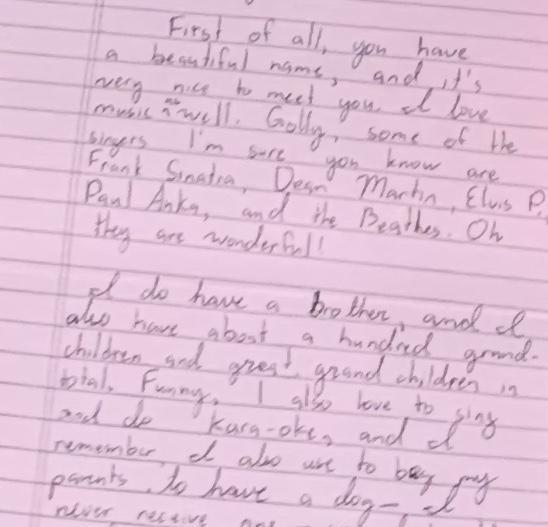 First of all, you have
a beautiful name, and it's
very nice to meet you. I love
music as well. Golly, some of the
singers I'm sure you know are
Frank Sinatra, Dean Martin, Elvis P.
Paul Anka, and the Beathes. Oh
they are wonderful!
I do have a brother, and I
also have about a hundred grand-
children and great grand children in
total. Funny, I also love to sing
and do kara-oke, and I
remember, I also use to beg my
parents to have a dog-, I
never receive